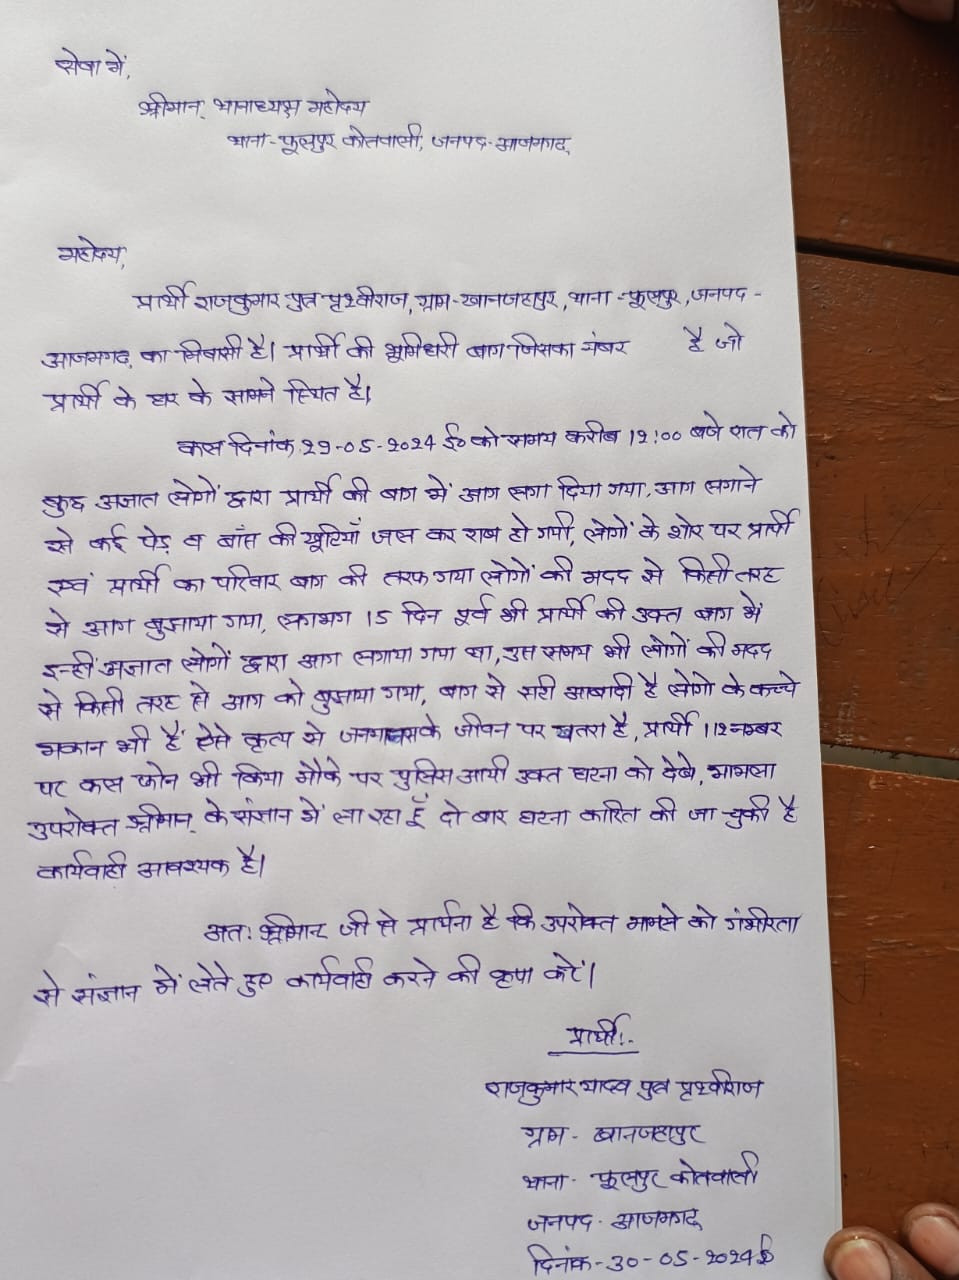 सेवा में,
श्रीमान् थानाध्यक्ष महोदय
थाना-फूलपुर कोतवाली, जनपद-आजमगढ़
महोदय,
प्रार्थी राजकुमार पुत्र पृथ्वीराज, ग्राम-खानजहापुर, थाना-फूलपुर, जनपद-
आजमगढ़ का निवासी है। प्रार्थी की भूमिधरी बाग जिसका नंबर है जो
प्रार्थी के घर के सामने स्थित है।
कल दिनांक 29-05-2024 ई० को समय करीब 12:00 बजे रात को
कुछ अज्ञात लोगों द्वारा प्रार्थी की बाग में आग लगा दिया गया, आग लगाने
से कई पेड़ व बाँस की खूटियाँ जल कर राख हो गयी, लोगों के शोर पर प्रार्थी
एवं प्रार्थी का परिवार बाग की तरफ गया लोगों की मदद से किसी तरह
से आग बुझाया गया, लगभग 15 दिन पूर्व भी प्रार्थी की उक्त बाग में
इन्हीं अज्ञात लोगों द्वारा आग लगाया गया था, उस समय भी लोगों की मदद
से किसी तरह से आग को बुझाया गया, बाग से सटी आबादी है लोगो के कच्चे
मकान भी हैं ऐसे कृत्य से जनमानसके जीवन पर खतरा है, प्रार्थी 112 नम्बर
पर कल फोन भी किया मौके पर पुलिस आयी उक्त घटना को देखे, मामला
उपरोक्त श्रीमान् के संज्ञान में ला रहा हूँ दो बार घटना कारित की जा चुकी है
कार्यवाही आवश्यक है।
अतः श्रीमान् जी से प्रार्थना है कि उपरोक्त मामले को गंभीरता
से संज्ञान में लेते हुए कार्यवाही करने की कृपा करें।
प्रार्थी:-
राजकुमार यादव पुत्र पृथ्वीराज
ग्राम- खानजहापुर
थाना- फूलपुर कोतवाली
जनपद- आजमगढ़
दिनांक-30-05-2024 ई